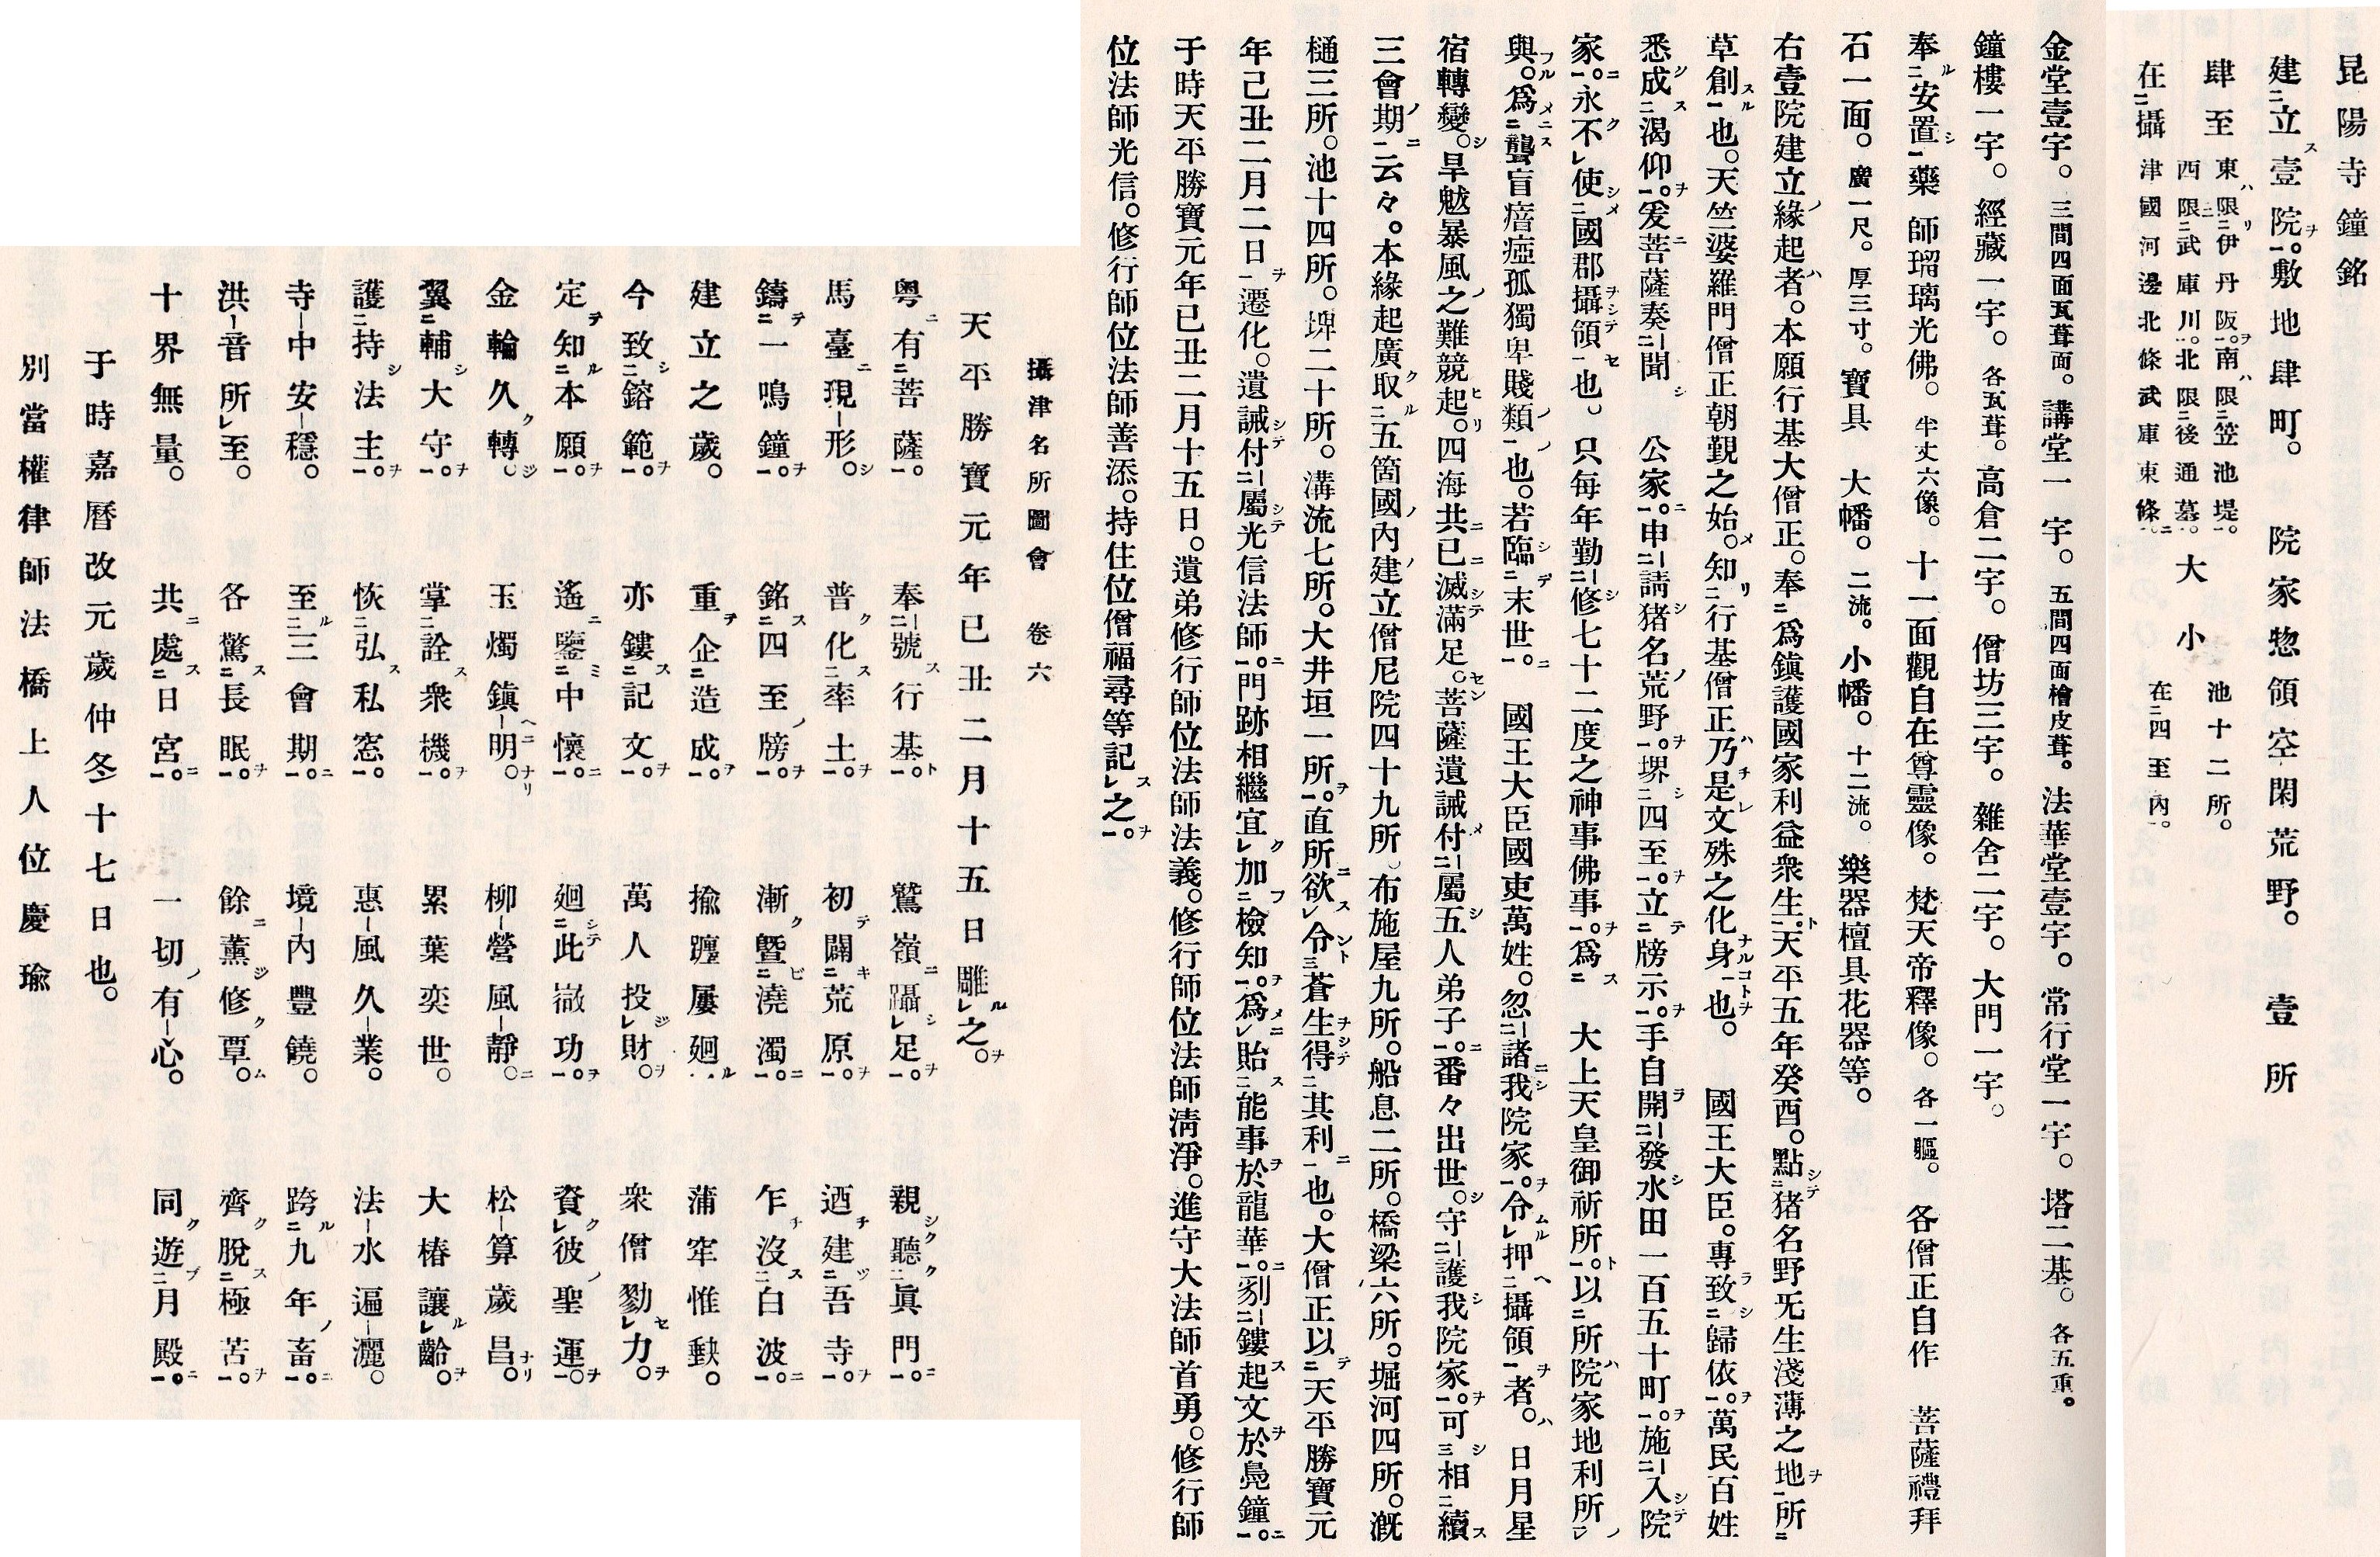 昆陽寺鐘銘
建立壹院。敷地肆町。　院家惣領空閑荒野。　壹所
肆至　東限伊丹阪。南限笠池堤。西限武庫川。北限後通墓。　大小　池十二所。在四至内。
在攝津國河邊北條武庫東條。
金堂壹宇。三間四面瓦葺面。講堂一宇。五間四面檜皮葺。法華堂壹宇。常行堂一宇。塔二基。各五重。
鐘樓一宇。經藏一宇。各瓦葺。高倉二宇。僧坊三宇。雜舍二宇。大門一宇。
奉安置藥師瑠璃光佛。半丈六像。十一面觀自在尊靈像。梵天帝釋像。各一軀。各僧正自作　菩薩禮拜
石一面。廣一尺。厚三寸。寶具　大幡。二流。小幡。十二流。樂器檀具花器等。
右壹院建立緣起者。本願行基大僧正。奉爲鎭護國家利益衆生。天平五年癸酉。點猪名野旡生淺薄之地所
草創也。天竺婆羅門僧正朝覲之始。知行基僧正乃是文殊之化身也。　國王大臣。專致歸依。萬民百姓
悉成渴仰。爰菩薩奏聞　公家。申請猪名荒野。堺四至。立牓示。手自開發水田一百五十町。施入院
家。永不使國郡攝領也。只每年勤修七十二度之神事佛事。爲　大上天皇御祈所。以所院家地利所
與。爲聾盲瘖瘂孤獨卑賤類也。若臨末世。　國王大臣國吏萬姓。忽諸我院家。令押攝領者。　日月星
宿轉變。旱魃暴風之難競起。四海共已滅滿足。菩薩遺誡付屬五人弟子。番々出世。守護我院家。可相續
三會期云々。本緣起廣取五箇國內建立僧尼院四十九所。布施屋九所。船息二所。橋梁六所。堀河四所。漑
樋三所。池十四所。埤二十所。溝流七所。大井垣一所。直所欲令蒼生得其利也。大僧正以天平勝寶元
年己丑二月二日遷化。遺誡付屬光信法師。門跡相繼宜加檢知。爲貽能事於龍華。剢鏤起文於鳧鐘。
于時天平勝寶元年已丑二月十五日。遺弟修行師位法師法義。修行師位法師淸淨。進守大法師首勇。修行師
位法師光信。修行師位法師善添。持住位僧福尋等記之。
攝津名所圖會　卷六
天平勝寶元年已丑二月十五日雕之。
粤有菩薩。　奉號行基。　鷲嶺躡足。　親聽眞門。
馬臺現形。　普化率土。　初闢荒原。　迺建吾寺。
鑄一鳴鐘。　銘四至牓。　漸曁澆濁。　乍沒白波。
建立之歲。　重企造成。　揄躔屢廻　蒲牢惟㱀。
今致鎔範。　亦鏤記文。　萬人投財。　衆僧勠力。
定知本願。　遙鑒中懷。　廻此徹功。　資彼聖運。
金輪久轉。　玉燭鎭明。　柳營風靜。　松算歲昌。
翼輔大守。　掌詮衆機。　累葉奕世。　大椿讓齡。
護持法主。　恢弘私窓。　惠風久業。　法水遍灑。
寺中安穩。　至三會期。　境內豐饒。　跨九年畜。
洪音所至。　各驚長眠。　餘薰修覃。　齊脫極苦。
十界無量。　共處日宮。　一切有心。　同遊月殿。
于時嘉曆改元歲仲冬十七日也。
別當權律師法橋上人位慶瑜